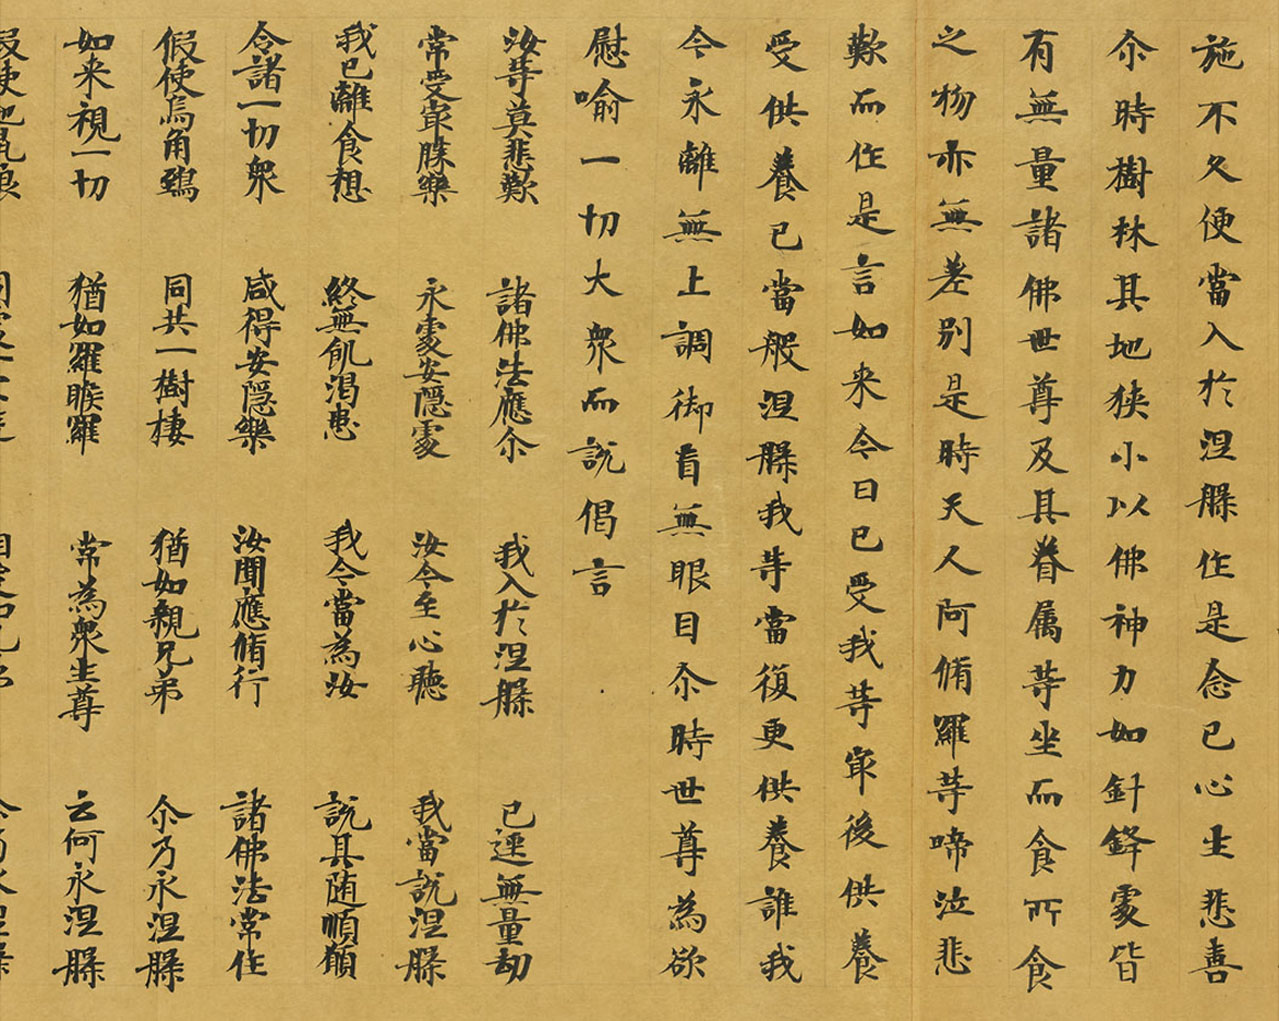 施不久便當入於涅槃作是念已心生悲善
尒時樹林其地狹小以佛神力如針鋒處皆
有無量諸佛世尊及其眷属等坐而食所食
之物亦無差別是時天人阿脩羅等啼泣悲
歎而作是言如来今日已受我等冣後供養
受供養已當般涅槃我等當復更供養誰我
今永離無上調御盲無眼目尒時世尊為欲
慰喻一切大衆而說偈言
汝等莫悲歎 諸佛法應尒 我入於涅槃 已逕無量劫
常受冣勝樂 永處安隱處 汝今至心聽 我當說涅槃
我已離食想 終無飢渴患 我今當為汝 說其随順願
令諸一切衆 咸得安隱樂 汝聞應脩行 諸佛法常住
假使烏角鵄 同共一樹棲 猶如親兄弟 尒乃永涅槃
如来視一切 猶如羅睺羅 常為衆生尊 云何永涅槃